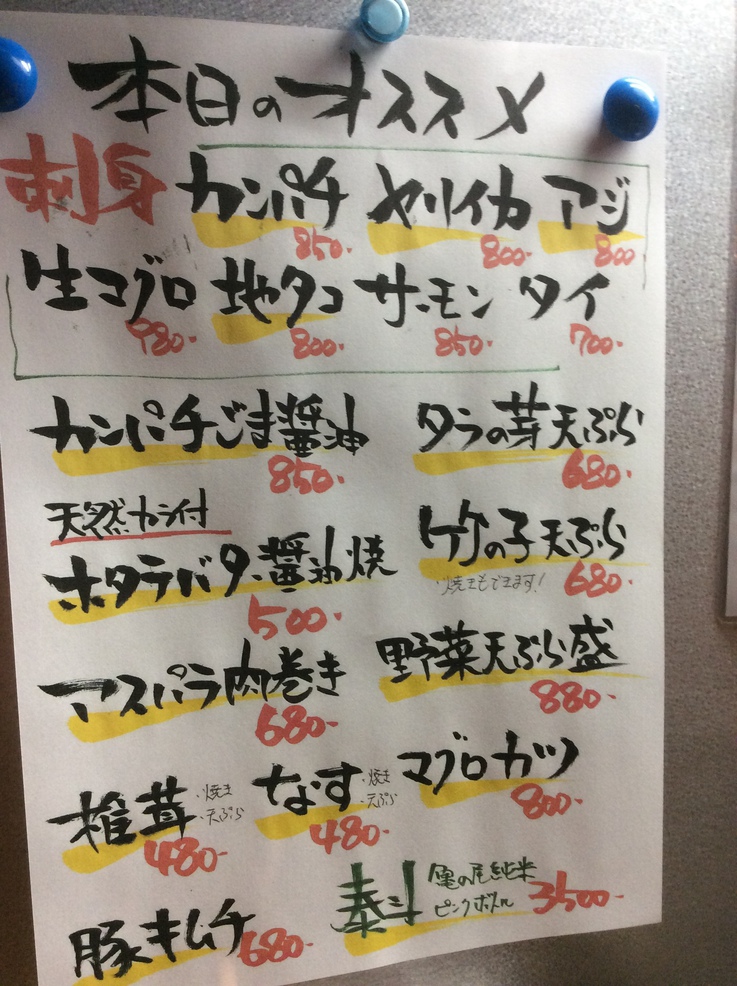 本日のオススメ
刺身 カンパチ ヤリイカ アジ
850- 800- 800
生マグロ 地タコ サーモン タイ
980- 800- 850- 700-
カンパチごま醤油
850-
タラの芽天ぷら
680-
天然カラ付
ホタテバター醤油焼
500-
竹の子天ぷら
・焼きもできます!
680-
アスパラ肉巻き
680-
野菜天ぷら盛
880-
椎茸 ・焼き
・天ぷら
480-
なす ・焼き
・天ぷら
480-
マグロカツ
800-
豚キムチ 680-
泰斗 亀の尾純米
ピンクボトル 3500-